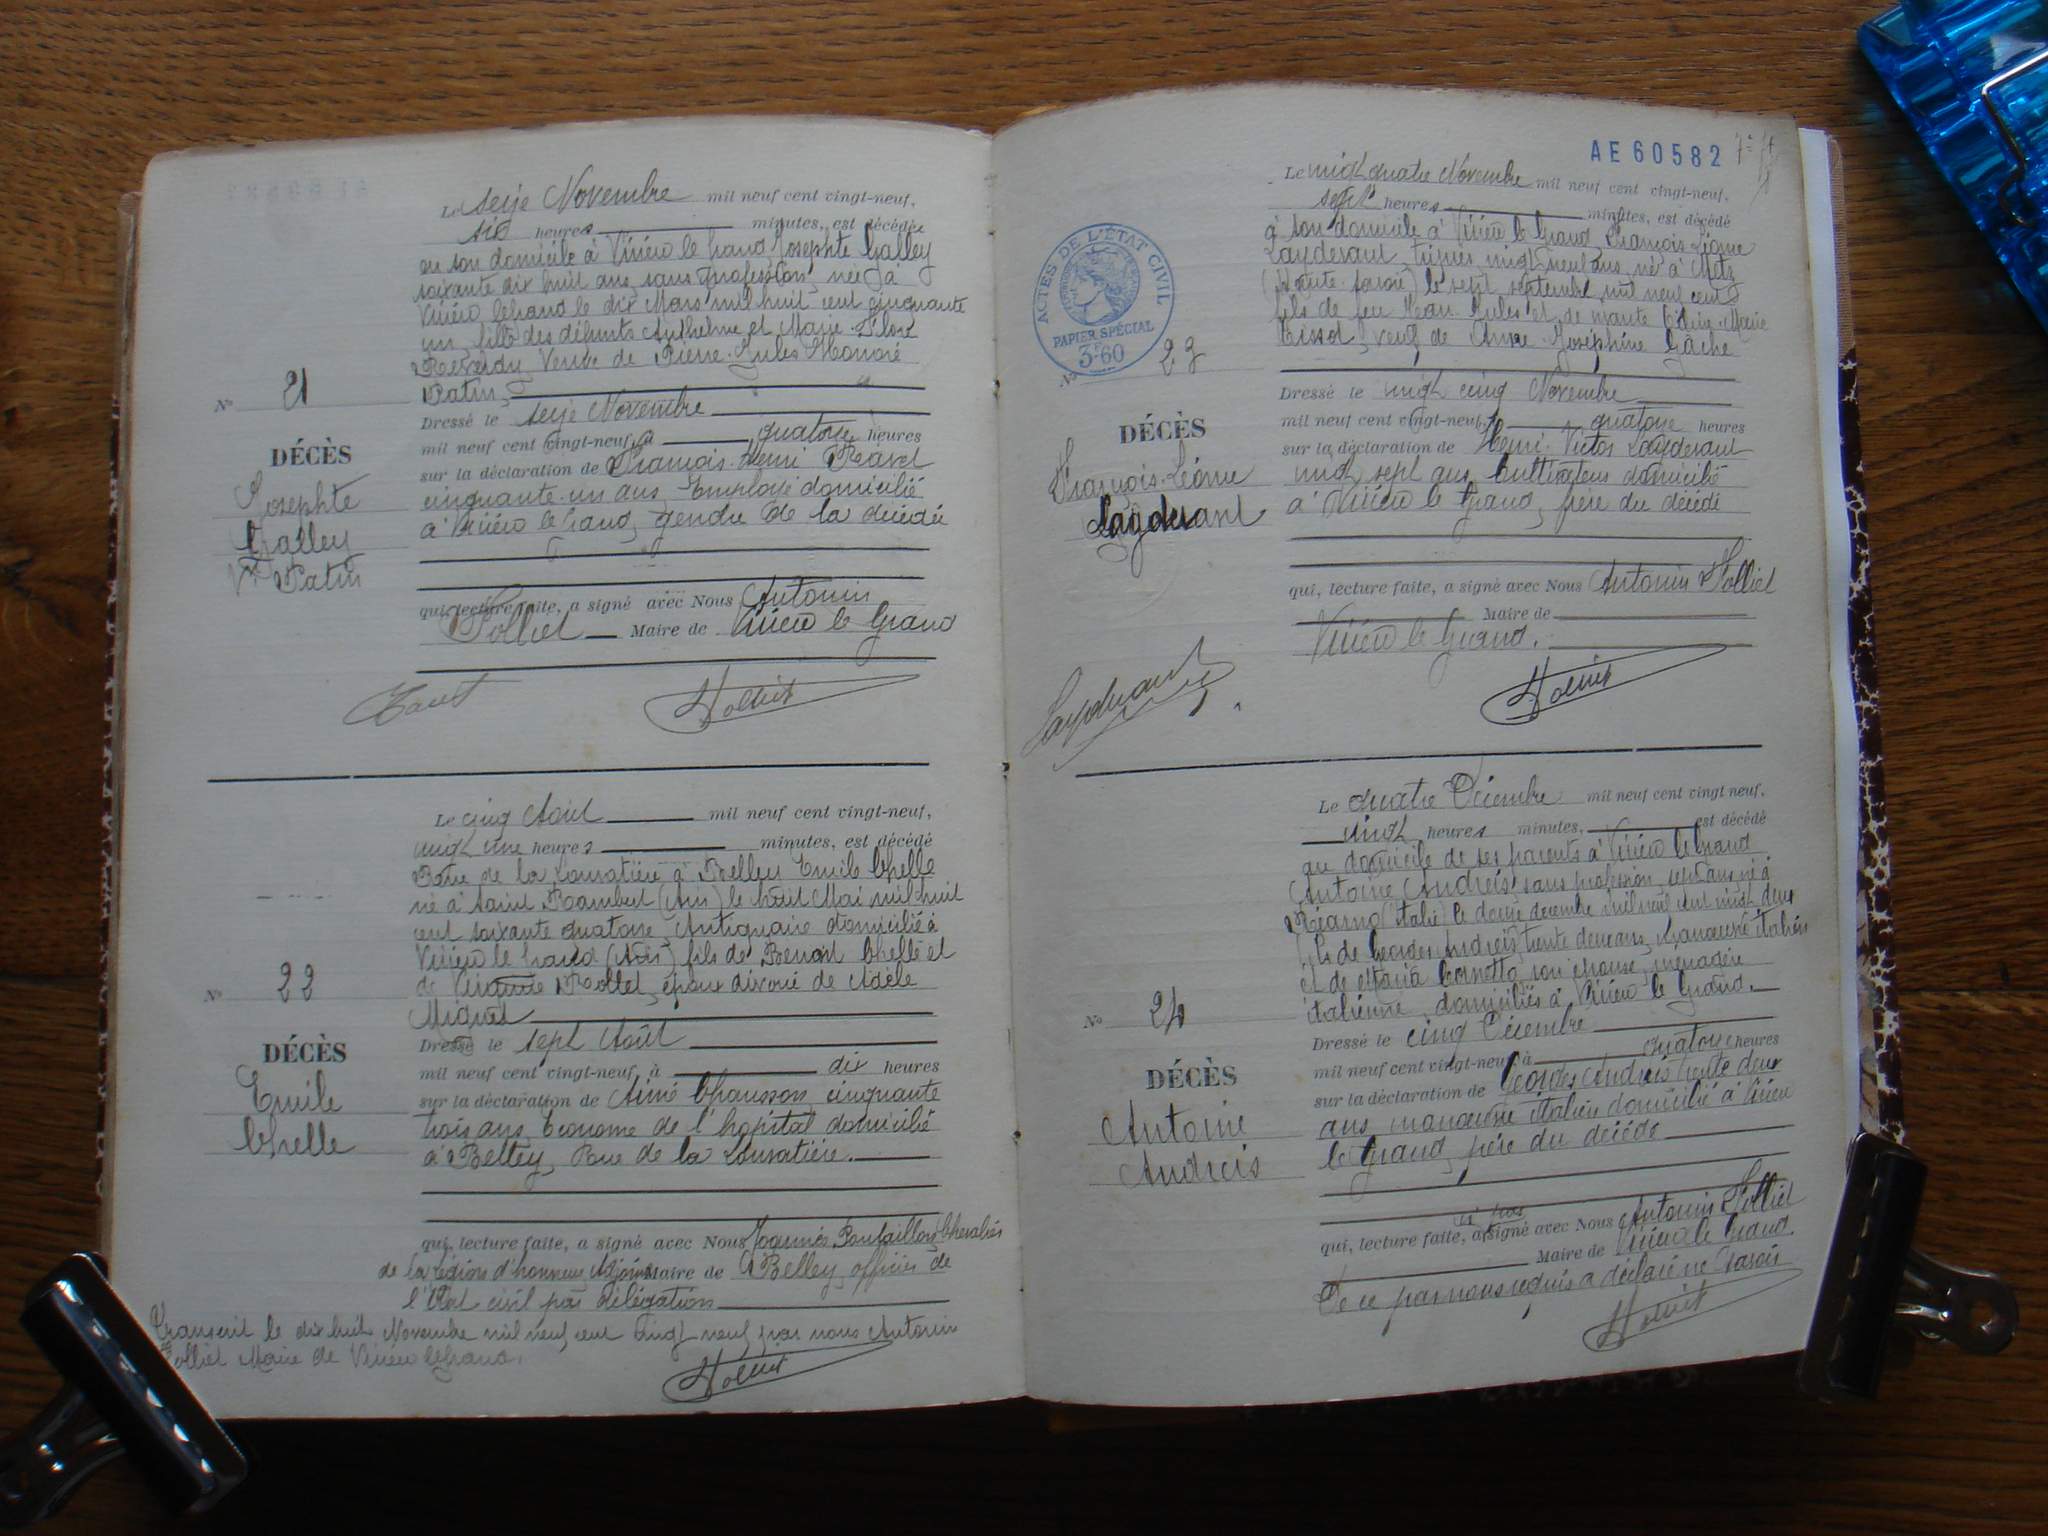 Le seize Novembre mil neuf cent vingt-neuf,
six heures minutes, est décédée
en son domicile à Virieu le Grand, Josephte Galley
soixante dix huit ans, sans profession, née à
Virieu le Grand le dix Mars mil huit cent cinquante
un, fille des défunts Anthelme et Marie Flore
Reverdy Veuve de Pierre Jules Honoré
Patin,
N° 21
DÉCÈS
Josephte
Galley
Vve Patin
Dressé le seize Novembre
mil neuf cent vingt-neuf, à quatorze heures
sur la déclaration de François Henri Ravet
cinquante un ans, Employé domicilié
à Virieu le Grand, gendre de la décédée
qui, lecture faite, a signé avec Nous Antonin
Folliet Maire de Virieu le Grand
Folliet
Le cinq Août mil neuf cent vingt-neuf,
vingt une heures minutes, est décédé
Rue de la à Belley Emile Chelle
né à Saint Rambert (Ain) le huit Mai mil huit
cent soixante quatorze, Antiquaire domicilié à
Virieu le Grand (Ain) fils de Benoit Chelle et
de Rollet, époux divorcé de Adèle
Mignot
N° 22
DÉCÈS
Emile
Chelle
Dressé le sept Août
mil neuf cent vingt-neuf, à dix heures
sur la déclaration de Aimé Chausson, cinquante
trois ans, Econome de l'hôpital domicilié
à Belley, Rue de la
qui, lecture faite, a signé avec Nous Joannès Chevalier
de la légion d'honneur, Adjoint Maire de Belley, officier de
l'Etat civil par délégation
Transcrit le dix huit Novembre mil neuf cent vingt neuf par nous Antonin
Folliet Maire de Virieu le Grand,
Folliet
AE 60582
Le vingt quatre Novembre mil neuf cent vingt-neuf,
sept heures minutes, est décédé
à son domicile à Virieu le Grand, François Léonce
Laydevant, vingt neuf ans, né à
(Haute Savoie) le sept septembre mil neuf cent
fils de feu Jean Jules et de Marie
Tissot, veuf de Anne Joséphine Gâche
ACTES DE L'ÉTAT CIVIL
PAPIER SPÉCIAL
3F60
N° 23
DÉCÈS
François Léonce
Laydevant
Dressé le vingt cinq Novembre
mil neuf cent vingt-neuf, à quatorze heures
sur la déclaration de Henri Victor Laydevant
vingt sept ans, Cultivateur domicilié
à Virieu le Grand, frère du décédé
qui, lecture faite, a signé avec Nous Antonin Folliet
Maire de
Virieu le Grand.
Laydevant
Folliet
Le quatre Décembre mil neuf cent vingt neuf,
vingt heures minutes, est décédé
au domicile de ses parents à Virieu le Grand
Antoine Andreis, sans profession, sept ans né à
(Italie) le douze décembre mil neuf cent vingt deux
fils de Georges Andreis, trente deux ans, Manœuvre italien
et de Maria Cornetto, son épouse, ménagère
italienne, domiciliés à Virieu le Grand.
N° 24
DÉCÈS
Antoine
Andreis
Dressé le cinq Décembre
mil neuf cent vingt-neuf, à quatorze heures
sur la déclaration de Georges Andreis trente deux
ans, manœuvre italien domicilié à Virieu
le Grand, père du décédé
qui, lecture faite, n'a pas signé avec Nous Antonin Folliet
Maire de Virieu le Grand.
De ce par nous requis a déclaré ne savoir
Folliet